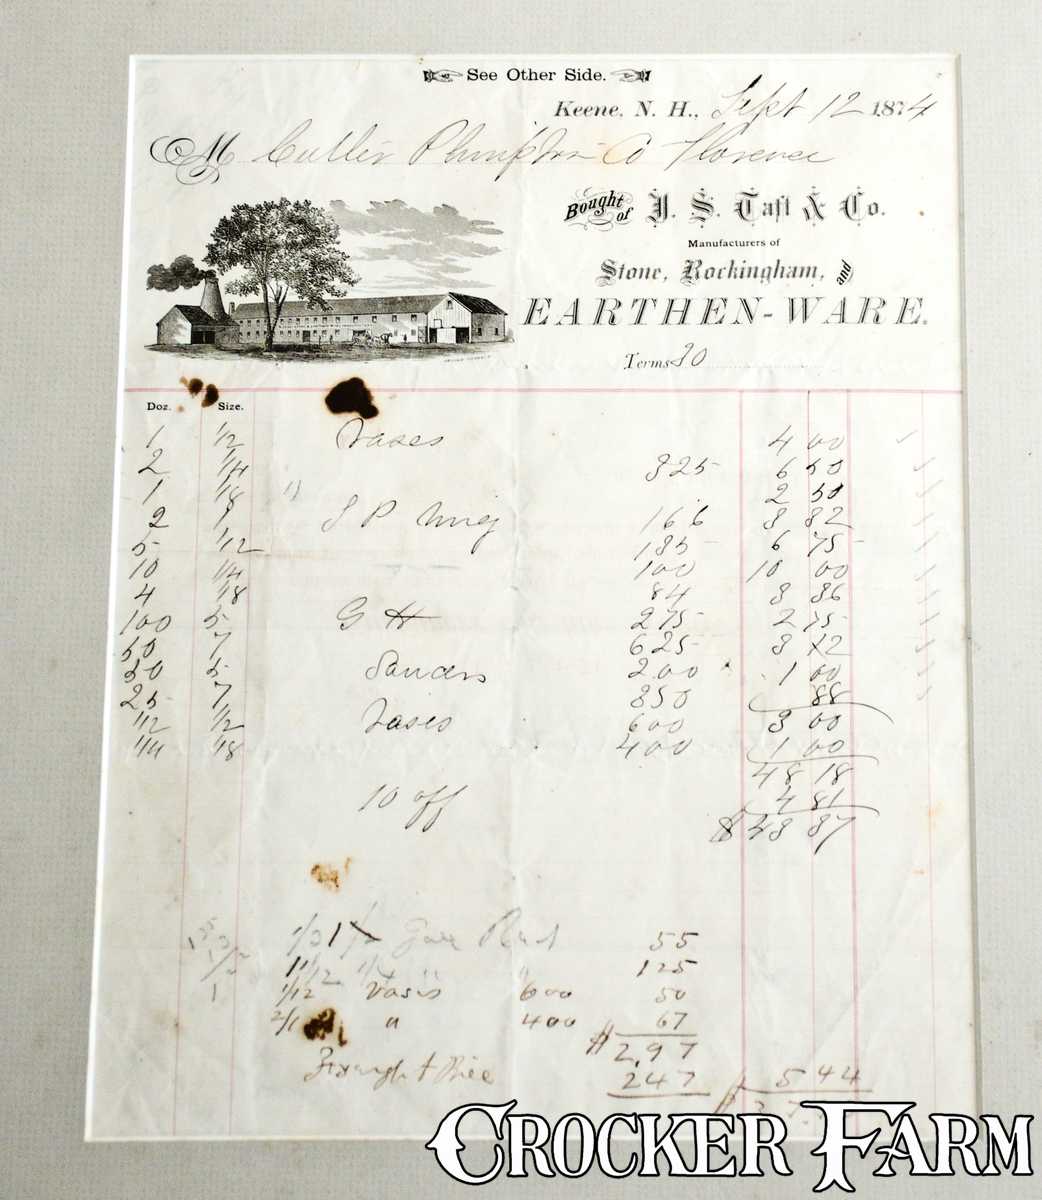 See Other Side.
Keene, N. H., Sept 12 1874
M Cutler Plimpton Co Florence
Bought of J. S. Taft & Co.
Manufacturers of
Stone, Rockingham, and
EARTHEN-WARE.
Terms 30
Doz. Size.
1 1/2 Vases 4 00
2 1/4 325 6 50
1 1/8 " 2 50
2 1 J P 166 3 32
5 1/2 135 6 75
10 1/4 100 10 00
4 1/8 84 3 36
100 5 G H 275 2 75
50 7 625 3 12
50 5 Saucers 200 1 00
25 7 350 88
1/2 1/2 Vases 600 3 00
1/4 1/8 400 1 00
48 18
10 off 4 81
$ 43 37
55
125
1/12 Vases 600 50
" 400 67
$ 2,97
247 5 44
CROCKER FARM